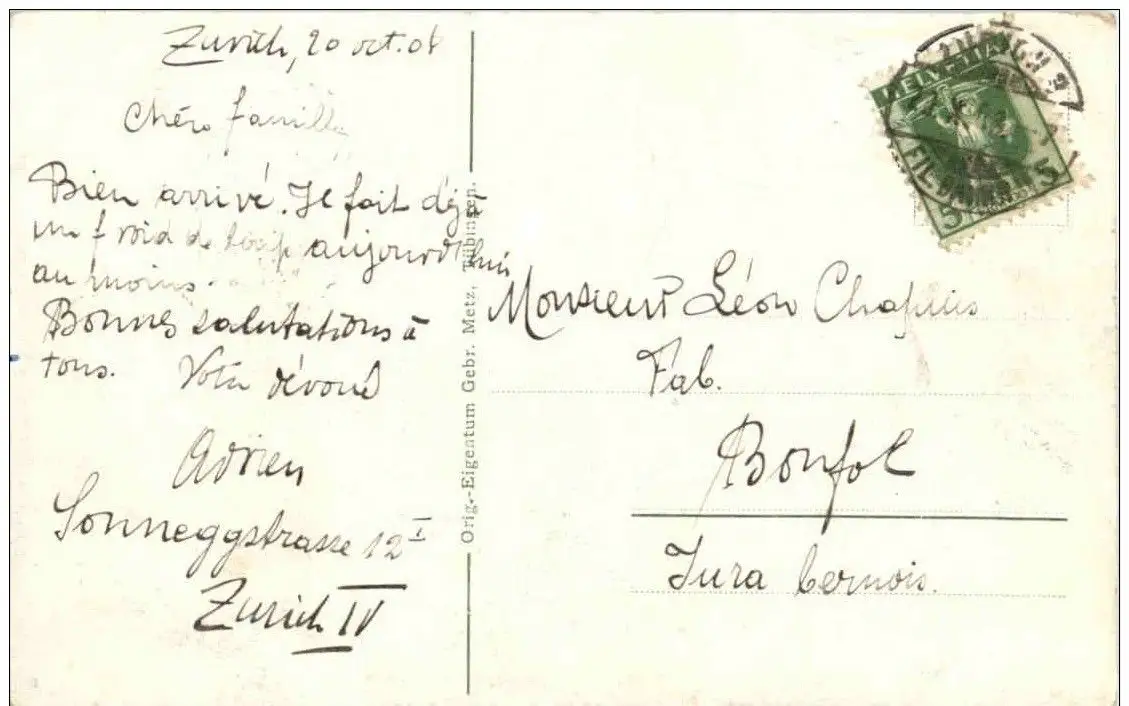 Zurich, 20 oct. 08
Chère famille
Bien arrivé. Il fait déjà
un froid de loup aujourd'hui
au moins.
Bonnes salutations à
tous. Votre dévoué
Adrien
Sonneggstrasse 12 I
Zurich IV
Orig.-Eigentum Gebr. Metz, Tübingen.
HELVETIA
5 5
Monsieur Léon Chapuis
Fab.
Bonfol
Jura bernois.